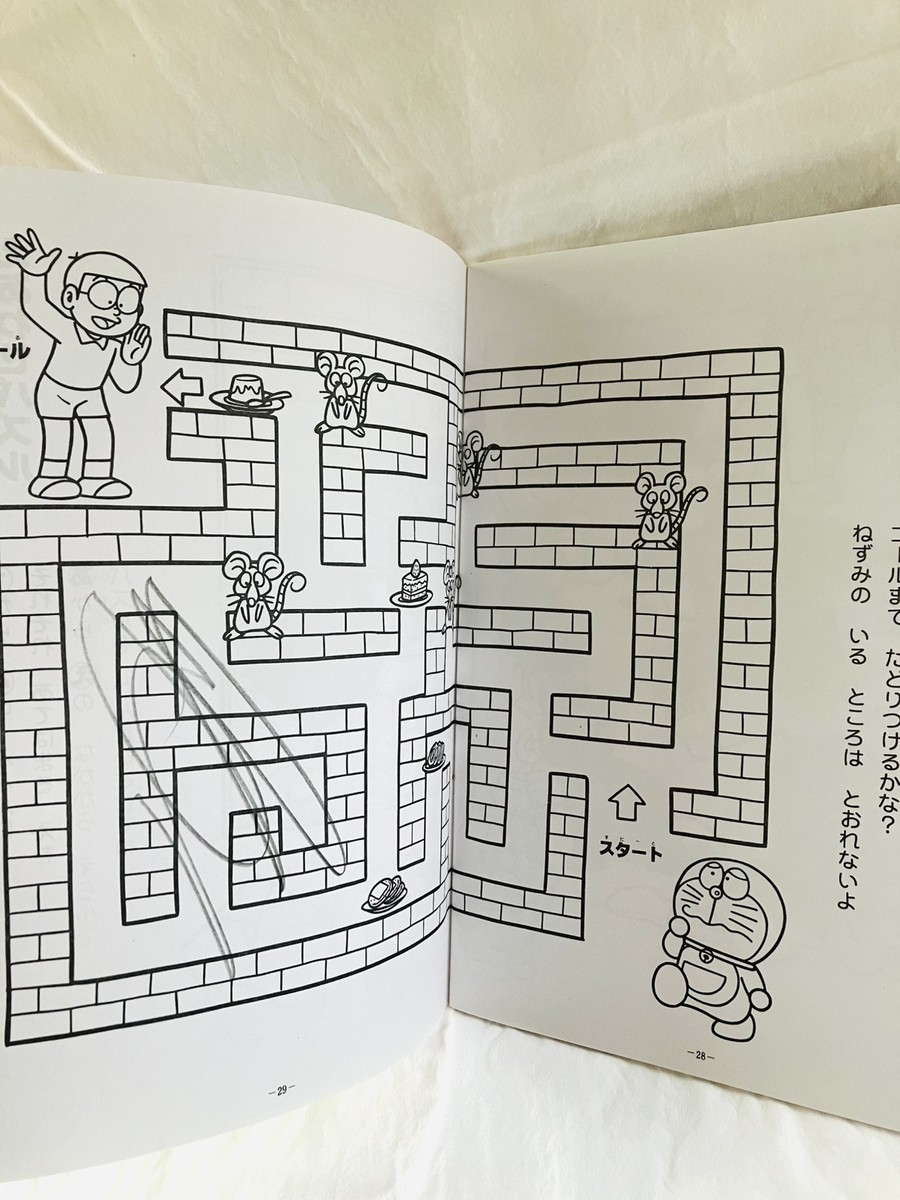 ゴールまで たどりつけるかな?
ねずみの いる ところは とおれないよ
スタート
ール
－28－
－29－